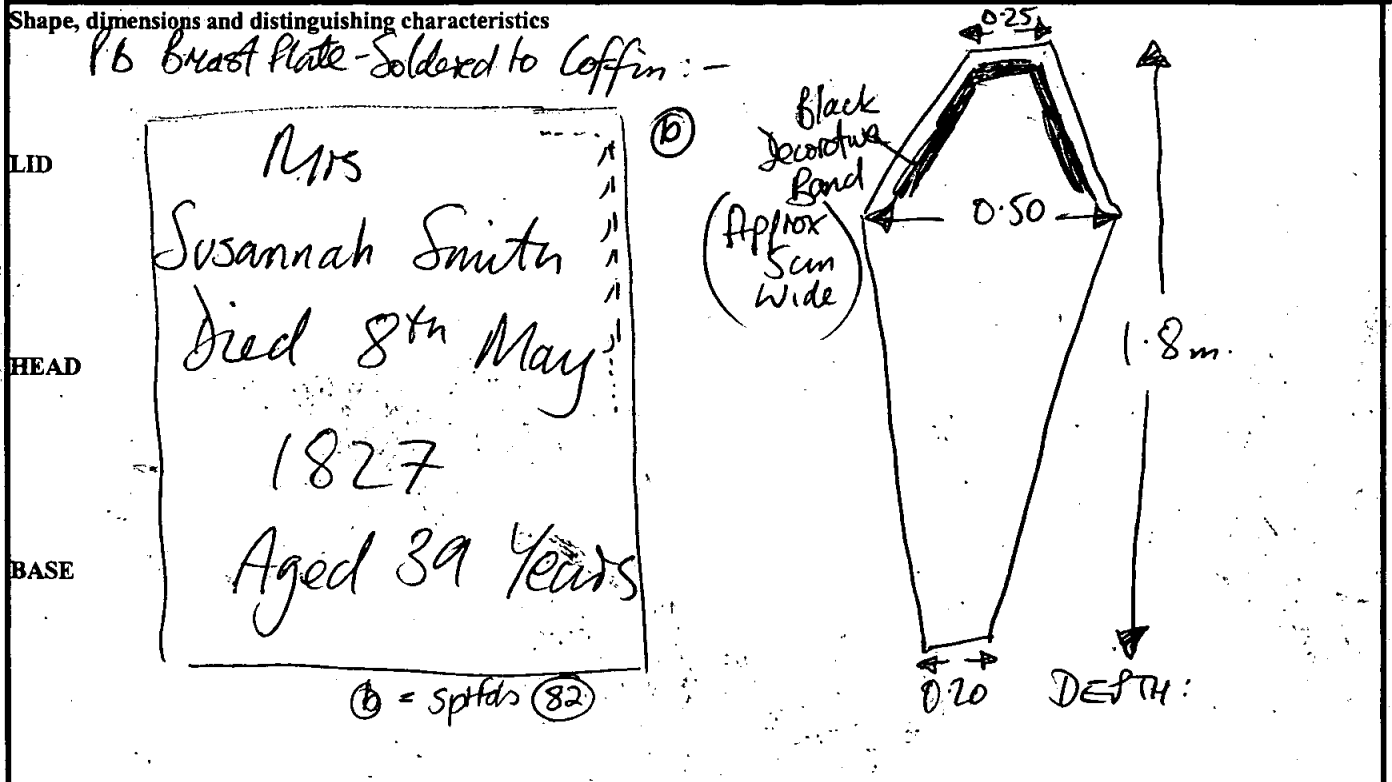 Shape, dimensions and distinguishing characteristics
PB Breast Plate - Soldered to Coffin :-
LID
HEAD
BASE
Mrs
Susannah Smith
Died 8th May
1827
Aged 39 Years
b
b = spitfds 82
Black
Decorative
Band
(Approx
5cm
Wide)
0.25
0.50
1.8m.
0.20
DEPTH: